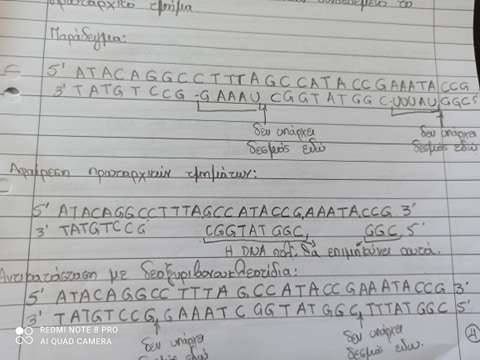 πρωταρχικό τμήμα
το
Παράδειγμα:
5' ATACAGGCCTTTAGCCATACCGAAATACCG
3' TATGTCCG-GAAAUCGGTATGGC-UUUAUGGC5'
δεν υπάρχει
δεσμός εδώ
δεν υπάρχει
δεσμός εδώ
Αφαίρεση πρωταρχικών τμημάτων:
5' ATACAGGCCTTTAGCCATACCGAAATACCG 3'
3' TATGTCCG CGGTATGGC GGC 5'
Η DNA πολ. θα επιμηκύνει αυτά.
Αντικατάσταση με δεοξυριβονουκλεοτίδια:
5' ATACAGGCCTTTAGCCATACCGAAATACCG 3'
3' TATGTCCGGAAATCGGTATGGCTTTATGGC 5'
δεν υπάρχει
δεσμός εδώ
δεν υπάρχει
δεσμός εδώ.
4
REDMI NOTE 8 PRO
AI QUAD CAMERA